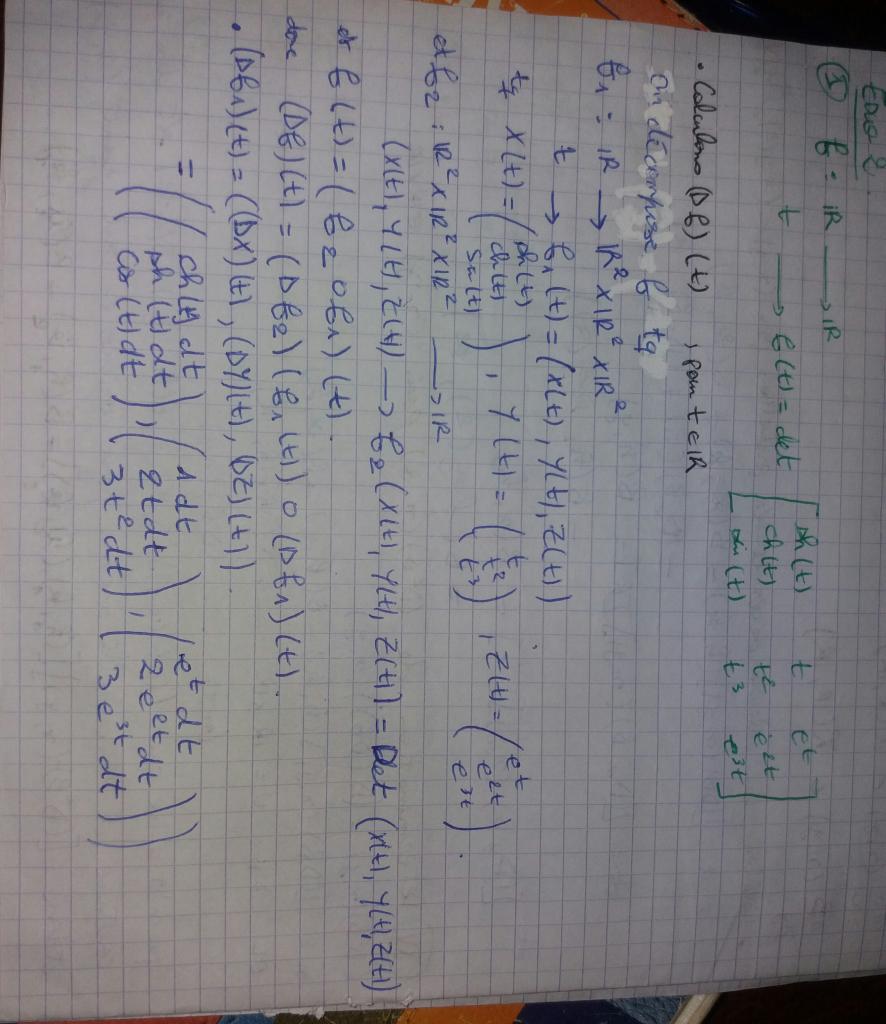 Exo 2.
① f : IR → IR
t → f(t) = det [ sh(t) t e^t
ch(t) t² e^{2t}
sin(t) t³ e^{3t} ]
• Calculons (Df)(t) , pour t ∈ IR
on décompose f tq
f₁ : IR → IR² x IR² x IR²
t → f₁(t) = (X(t), Y(t), Z(t))
tq X(t) = ( sh(t)
ch(t)
Sin(t) ) , Y(t) = ( t
t²
t³ ) , Z(t) = ( e^t
e^{2t}
e^{3t} ) .
et f₂ : IR² x IR² x IR² → IR
(X(t), Y(t), Z(t)) → f₂ (X(t), Y(t), Z(t)) = Det (X(t), Y(t), Z(t))
et f(t) = (f₂ o f₁)(t).
donc (Df)(t) = (Df₂)(f₁(t)) o (Df₁)(t).
• (Df₁)(t) = ((DX)(t), (DY)(t), DZ)(t)).
= ( ( ch(t) dt
sh(t) dt
Cos(t) dt ) , ( 1 dt
2t dt
3t² dt ) , ( e^t dt
2 e^{2t} dt
3 e^{3t} dt ) )